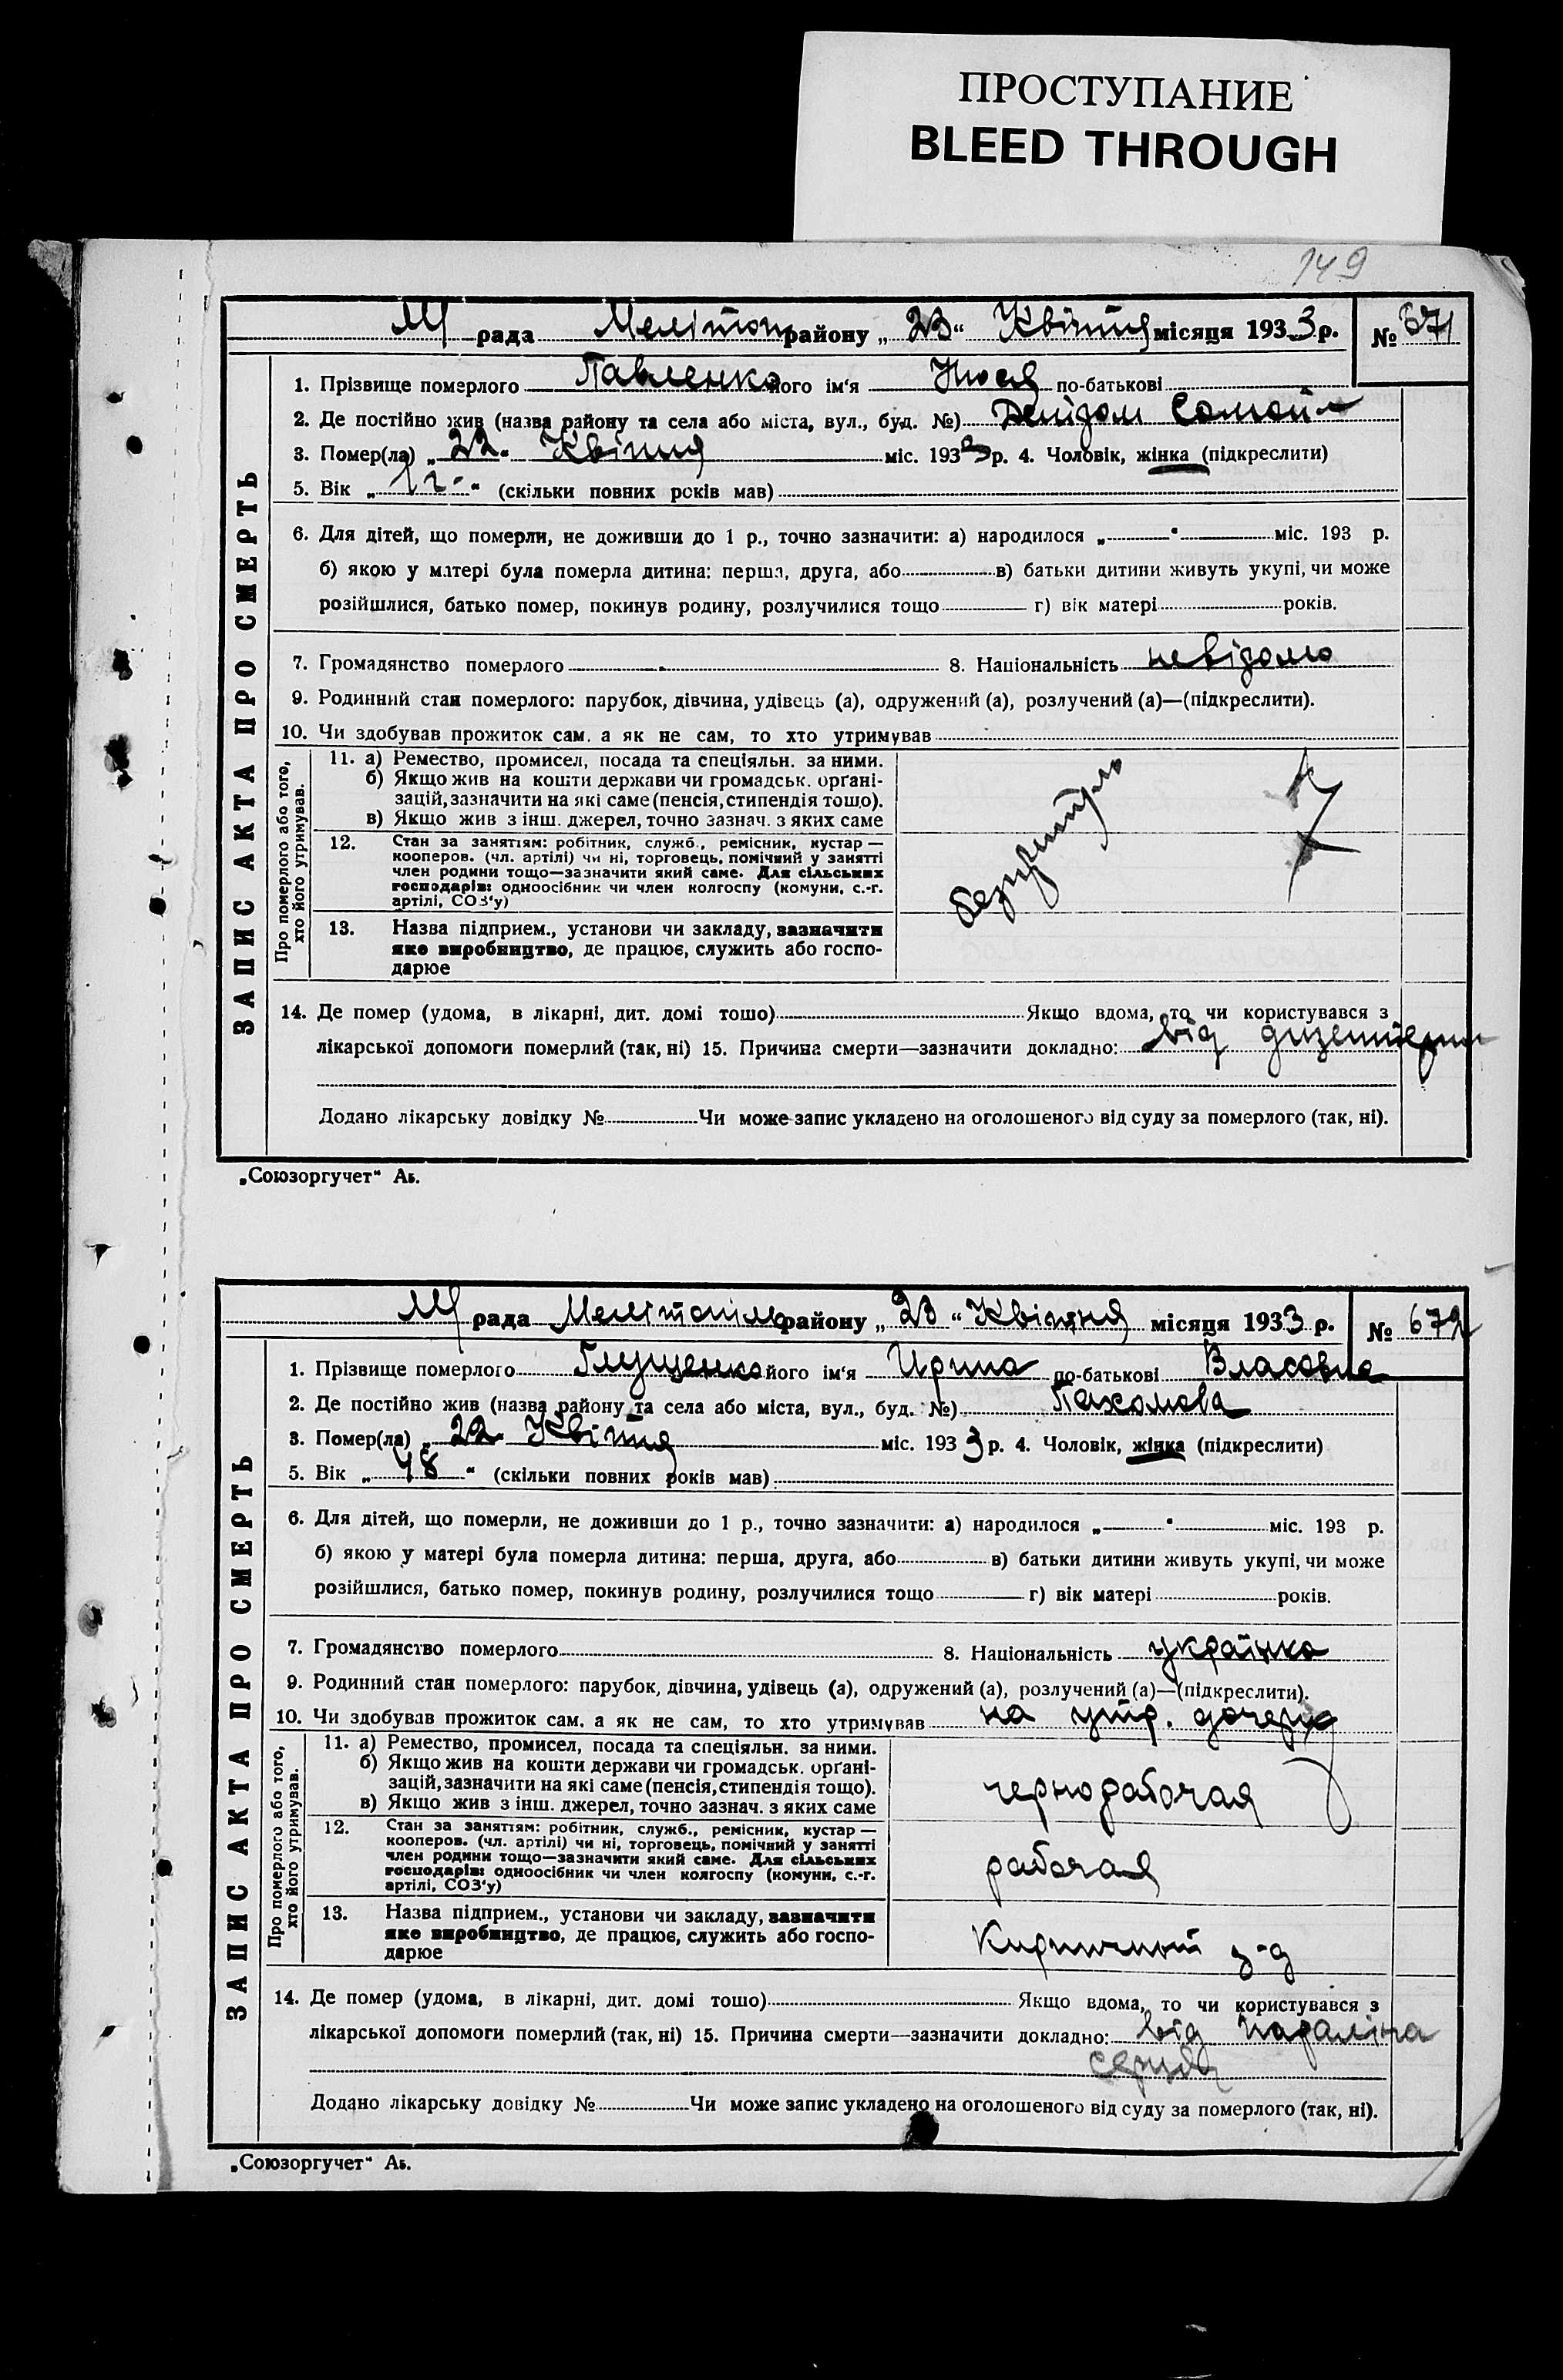 ПРОСТУПАНИЕ
BLEED THROUGH
149
ЗАПИС АКТА ПРО СМЕРТЬ
МР рада Мелітоп району „ 23 “ Квітня місяця 1933 р. № 671
1. Прізвище померлого Павленко його ім‘я Нюся по-батькові
2. Де постійно жив (назва району та села або міста, вул., буд. №)
3. Помер(ла) „ 22 “ Квітня міс. 1933 р. 4. Чоловік, жінка (підкреслити)
5. Вік „ 1 г. “ (скільки повних років мав)
6. Для дітей, що померли, не доживши до 1 р., точно зазначити: а) народилося „ “ міс. 193 р.
б) якою у матері була померла дитина: перша, друга, або в) батьки дитини живуть укупі, чи може
розійшлися, батько помер, покинув родину, розлучилися тощо г) вік матері років.
7. Громадянство померлого 8. Національність невідомо
9. Родинний стан померлого: парубок, дівчина, удівець (а), одружений (а), розлучений (а)—(підкреслити).
10. Чи здобував прожиток сам, а як не сам, то хто утримував
Про померлого або того, хто його утримував.
11. а) Ремество, промисел, посада та спеціяльн. за ними.
б) Якщо жив на кошти держави чи громадськ. орґані-
зацій, зазначити на які саме (пенсія, стипендія тощо).
в) Якщо жив з інш. джерел, точно зазнач. з яких саме
12. Стан за заняттям: робітник, служб., ремісник, кустар —
кооперов. (чл. артілі) чи ні, торговець, помічний у занятті
член родини тощо—зазначити який саме. Для сільських
господарів: одноосібник чи член колгоспу (комуни, с.-г.
артілі, СОЗ‘у)
13. Назва підприєм., установи чи закладу, зазначити
яке виробництво, де працює, служить або госпо-
дарює
14. Де помер (удома, в лікарні, дит. домі тощо) Якщо вдома, то чи користувався з
лікарської допомоги померлий (так, ні) 15. Причина смерти—зазначити докладно: від дизентерии
Додано лікарську довідку № Чи може запис укладено на оголошеного від суду за померлого (так, ні).
„Союзоргучет“ Аъ.
ЗАПИС АКТА ПРО СМЕРТЬ
МР рада Мелітопіль району „ 23 “ Квітня місяця 1933 р. № 672
1. Прізвище померлого Глущенко його ім‘я Ирина по-батькові Власовна
2. Де постійно жив (назва району та села або міста, вул., буд. №) Пахомова
3. Помер(ла) „ 22 “ Квітня міс. 1933 р. 4. Чоловік, жінка (підкреслити)
5. Вік „ 48 “ (скільки повних років мав)
6. Для дітей, що померли, не доживши до 1 р., точно зазначити: а) народилося „ “ міс. 193 р.
б) якою у матері була померла дитина: перша, друга, або в) батьки дитини живуть укупі, чи може
розійшлися, батько помер, покинув родину, розлучилися тощо г) вік матері років.
7. Громадянство померлого 8. Національність українка
9. Родинний стан померлого: парубок, дівчина, удівець (а), одружений (а), розлучений (а)—(підкреслити).
10. Чи здобував прожиток сам, а як не сам, то хто утримував на утр. дочери
Про померлого або того, хто його утримував.
11. а) Ремество, промисел, посада та спеціяльн. за ними.
б) Якщо жив на кошти держави чи громадськ. орґані-
зацій, зазначити на які саме (пенсія, стипендія тощо).
в) Якщо жив з інш. джерел, точно зазнач. з яких саме
чернорабочая
12. Стан за заняттям: робітник, служб., ремісник, кустар —
кооперов. (чл. артілі) чи ні, торговець, помічний у занятті
член родини тощо—зазначити який саме. Для сільських
господарів: одноосібник чи член колгоспу (комуни, с.-г.
артілі, СОЗ‘у)
рабочая
13. Назва підприєм., установи чи закладу, зазначити
яке виробництво, де працює, служить або госпо-
дарює
Кирпичный з-д
14. Де помер (удома, в лікарні, дит. домі тощо) Якщо вдома, то чи користувався з
лікарської допомоги померлий (так, ні) 15. Причина смерти—зазначити докладно: від параліча
серця
Додано лікарську довідку № Чи може запис укладено на оголошеного від суду за померлого (так, ні).
„Союзоргучет“ Аъ.